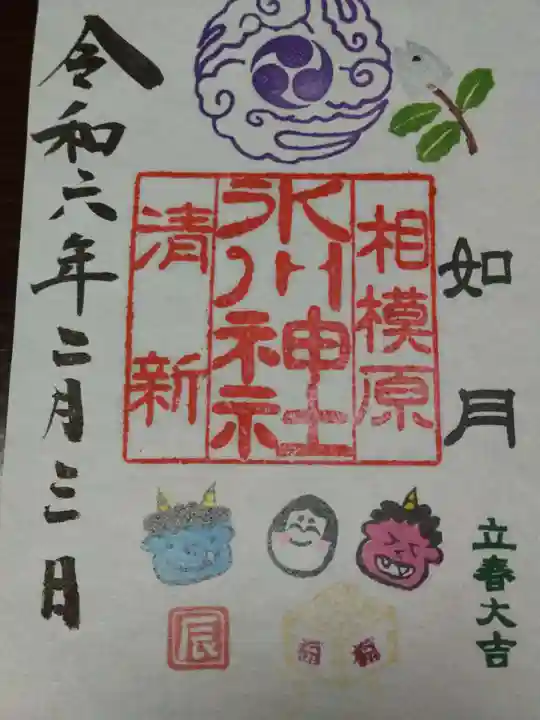 如月
立春大吉
相模原
氷川神社
清新
令和六年二月三日
辰
福 福